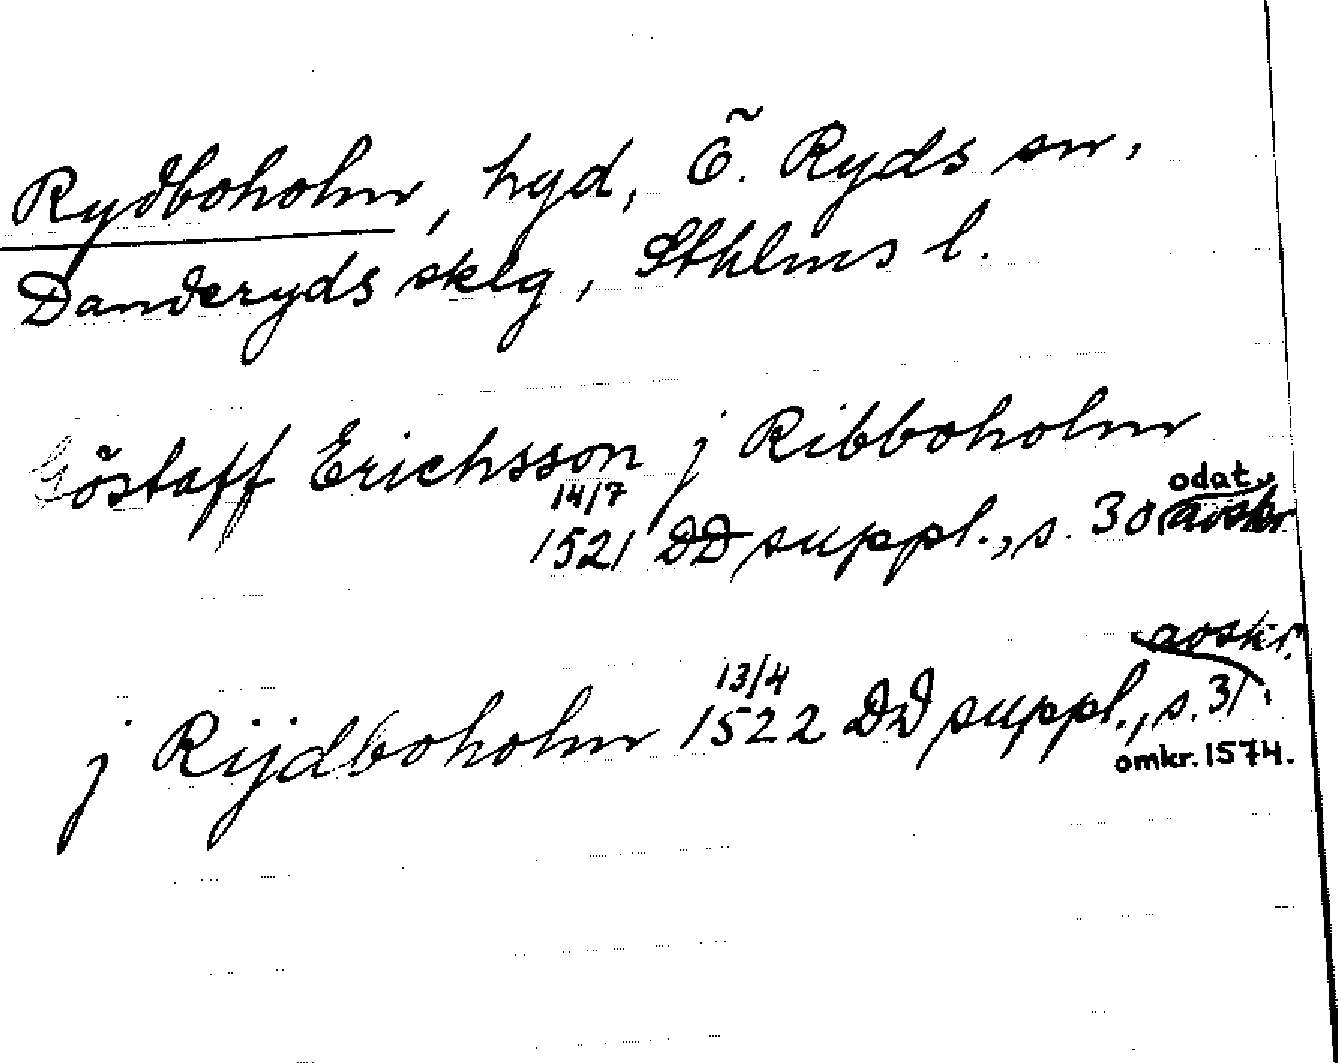 Rydboholm, hgd, Ö. Ryds sn,
Danderyds sklg, Sthlms l.
Göstaff Erichsson j Ribboholm
14/7 1521 DD suppl., s. 30 odat. avskr.
j Rijdboholm 13/4 1522 DD suppl., s. 31 avskr. omkr. 1574.